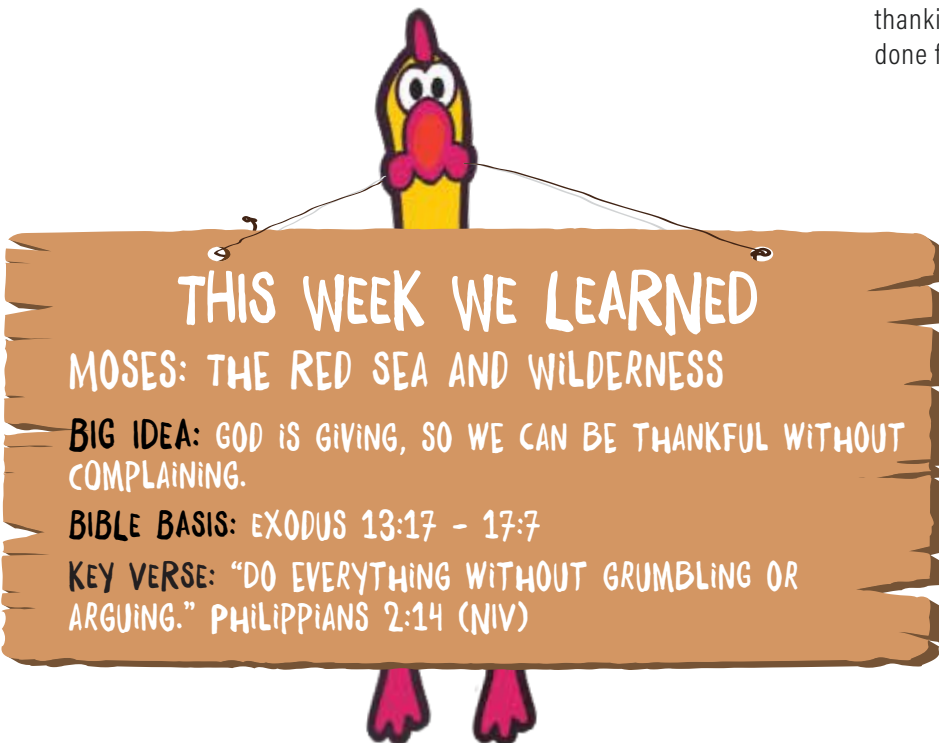 thanki
done f
THIS WEEK WE LEARNED
MOSES: THE RED SEA AND WILDERNESS
BIG IDEA: GOD IS GIVING, SO WE CAN BE THANKFUL WITHOUT
COMPLAINING.
BIBLE BASIS: EXODUS 13:17 - 17:7
KEY VERSE: “DO EVERYTHING WITHOUT GRUMBLING OR
ARGUING.” PHILIPPIANS 2:14 (NIV)